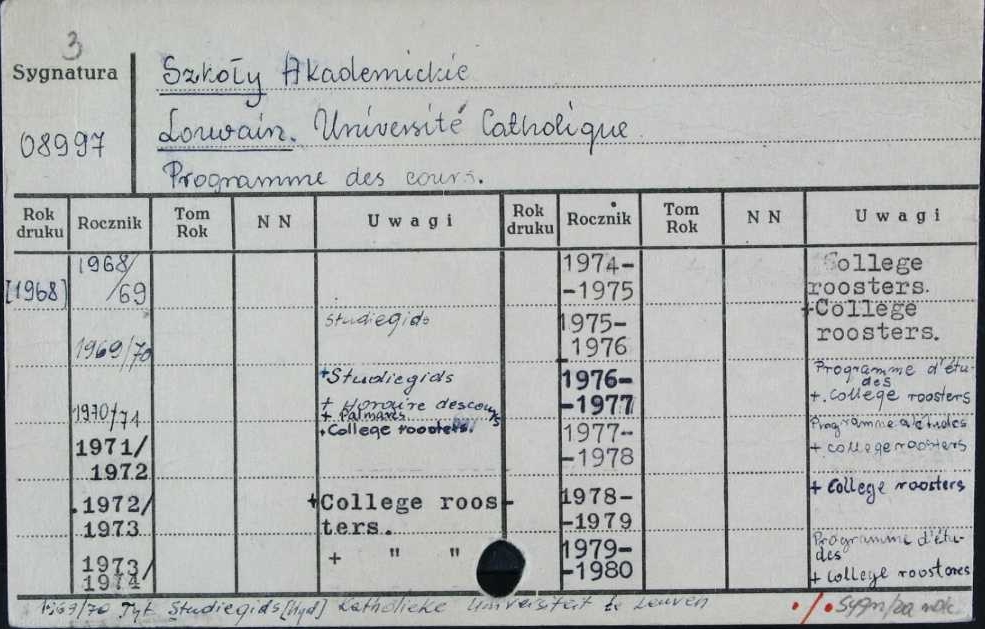 3
Sygnatura
08997
Szkoły Akademickie
Louvain. Université Catholique
Programme des cours.
Rok druku Rocznik Tom Rok NN Uwagi Rok druku Rocznik Tom Rok NN Uwagi
[1968] 1968/69
1969/70 Studiegids
1970/71 +Studiegids
+ Horaire des cours
+ Palmarès
1971/1972 +College roosters.
1972/1973 +College roosters.
1973/1974 + " "
1974-1975 College roosters.
1975-1976 +College roosters.
1976-1977 Programme d'études
+ College roosters
1977-1978 Programme d'études
+ college roosters
1978-1979 + College roosters
1979-1980 Programme d'études
+ College roosters
1969/70 Tyt. Studiegids Katholieke Universiteit te Leuven
./.